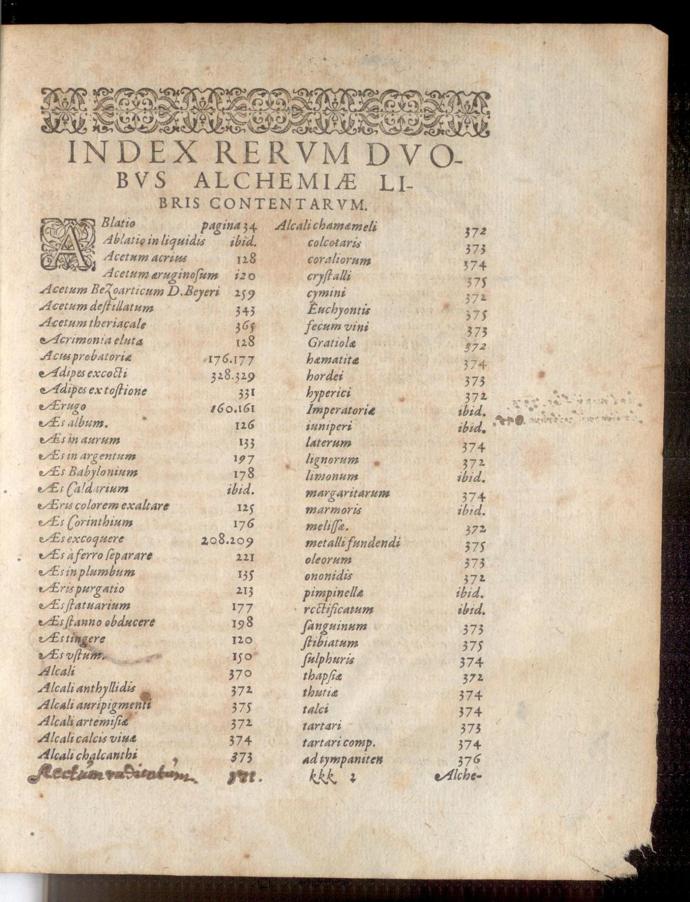 INDEX RERVM DVO-
BVS ALCHEMIÆ LI-
BRIS CONTENTARVM.
ABlatio pagina 34
Ablatio in liquidis ibid.
Acetum acrius 128
Acetum æruginosum 120
Acetum Bezoarticum D. Beyeri 259
Acetum destillatum 343
Acetum theriacale 365
Acrimonia eluta 128
Acus probatoriæ 176.177
Adipes excocti 328.329
Adipes ex tostione 331
Ærugo 160.161
Æs album. 126
Æs in aurum 133
Æs in argentum 197
Æs Babylonium 178
Æs Caldarium ibid.
Æris colorem exaltare 125
Æs Corinthium 176
Æs excoquere 208.209
Æs à ferro separare 221
Æs in plumbum 135
Æris purgatio 213
Æs statuarium 177
Æs stanno obducere 198
Æs tingere 120
Æs vstum. 150
Alcali 370
Alcali anthyllidis 372
Alcali auripigmenti 375
Alcali artemisiæ 372
Alcali calcis viuæ 374
Alcali chalcanthi 373
Alcali chamæmeli 372
colcotaris 373
coraliorum 374
crystalli 375
cymini 372
Euchyontis 375
fecum vini 373
Gratiolæ 372
hæmatitæ 374
hordei 373
hyperici 372
Imperatoriæ ibid.
iuniperi ibid.
laterum 374
lignorum 372
limonum ibid.
margaritarum 374
marmoris ibid.
melissæ. 372
metalli fundendi 375
oleorum 373
ononidis 372
pimpinellæ ibid.
rectificatum ibid.
sanguinum 373
stibiatum 375
sulphuris 374
thapsiæ 372
thutiæ 374
talci 374
tartari 373
tartari comp. 374
ad tympaniten 376
kkk 2 Alche-